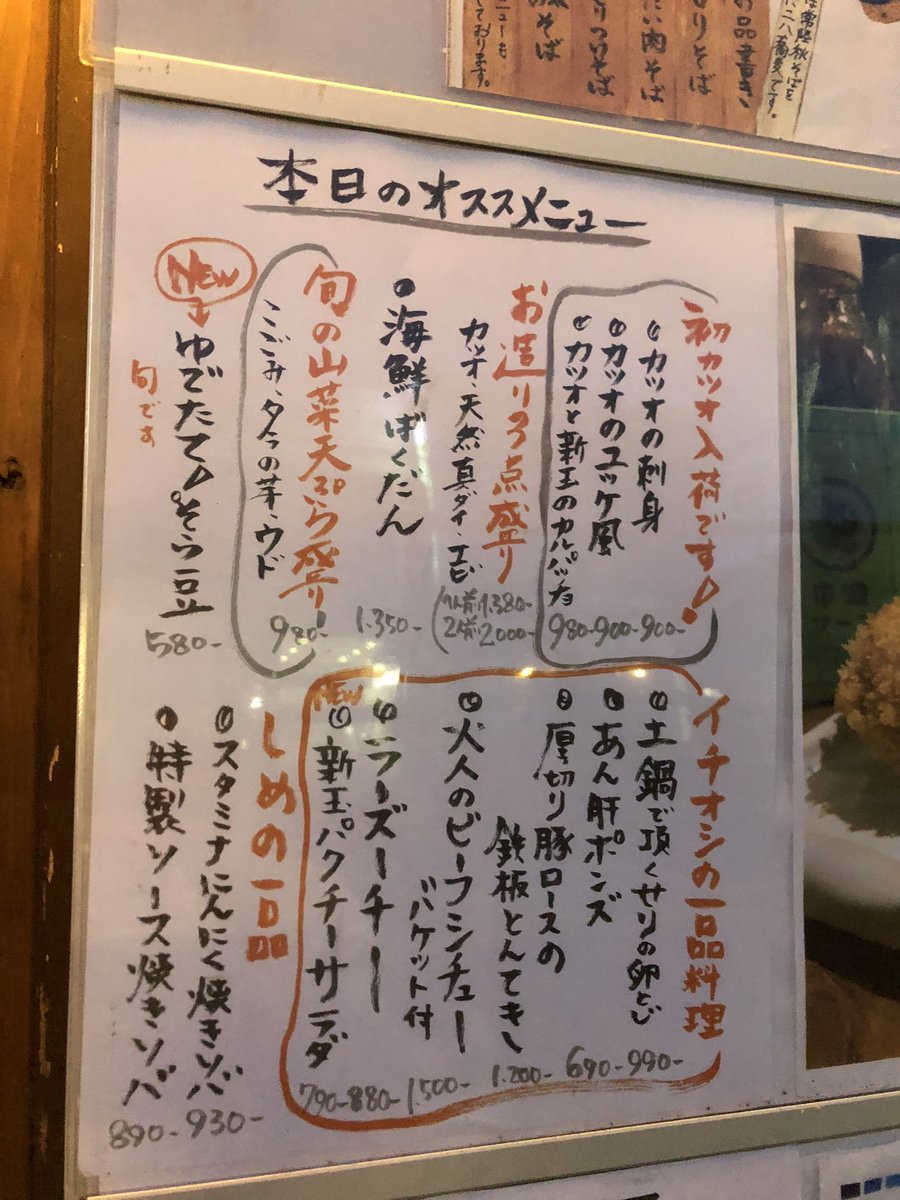 本日のオススメニュー
初カツオ入荷です!
カツオの刺身
900-
カツオのユッケ風
900-
カツオと新玉のカルパッチョ
980-
お造り3点盛り
カツオ、天然真ダイ、エビ
1人前1.380-
2人前2000-
海鮮ばくだん
1.350-
旬の山菜天ぷら盛り
こごみ、タラの芽、ウド
980-
NEW
ゆでたて!そら豆
旬です
580-
イチオシの一品料理
土鍋で頂くセリの卵とじ
990-
あん肝ポンズ
690-
厚切り豚ロースの
鉄板とんてき
1.200-
大人のビーフシチュー
バケット付
1.500-
フーズーチー
880-
NEW
新玉パクチーサラダ
790-
しめの一品
スタミナにんにく焼きソバ
930-
特製ソース焼きソバ
890-